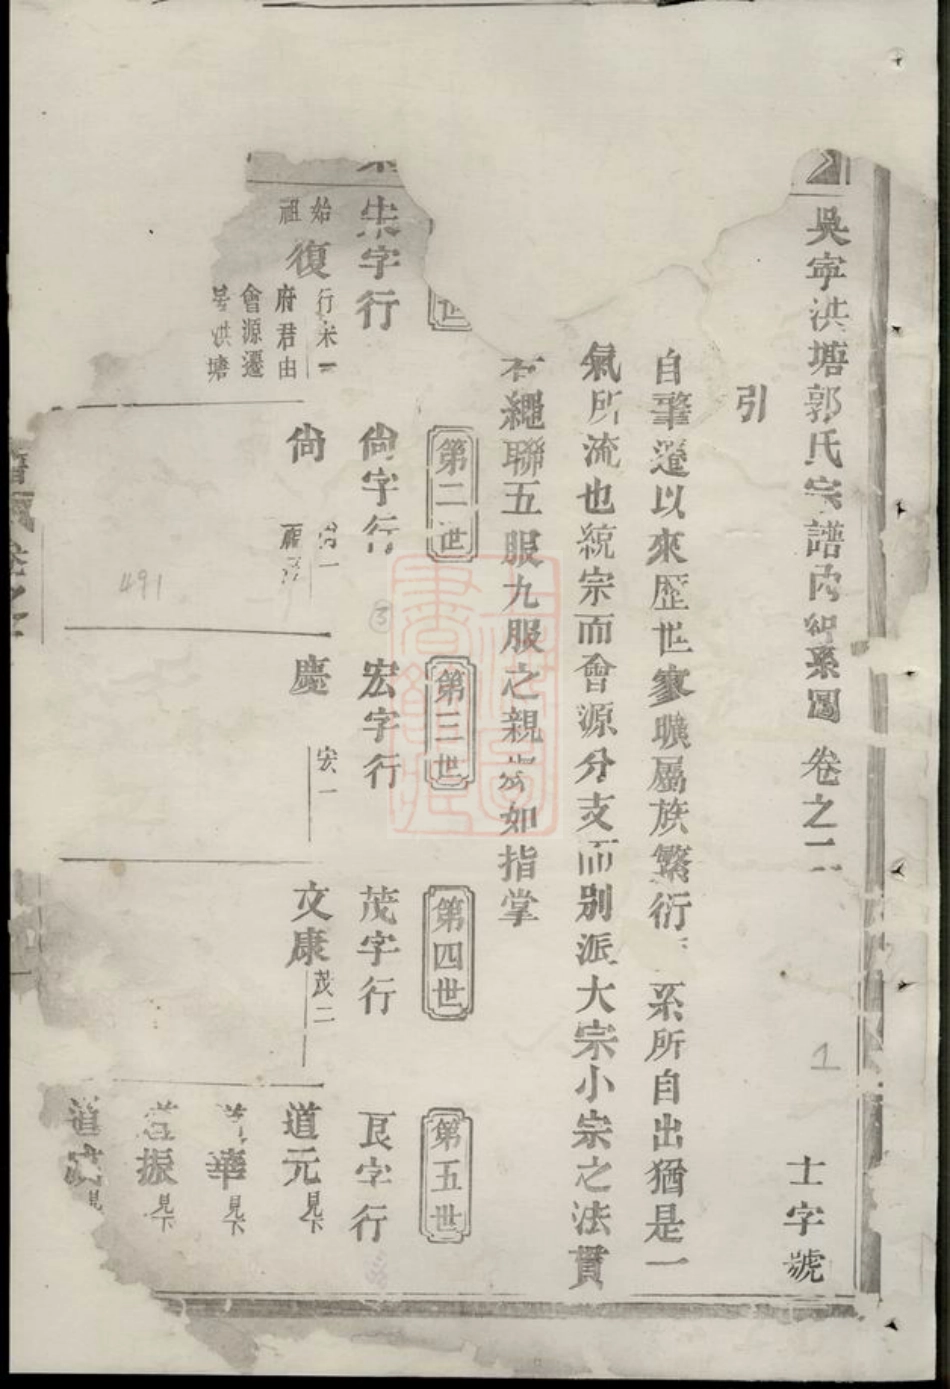 吳寧洪塘郭氏宗譜內紀系圖 卷之二 士字號
引
自肇遷以來歷世寥曠屬族繁衍 系所自出猶是一
氣所流也統宗而會源分支而別派大宗小宗之法貫
繩聯五服九服之親 如指掌
世
第二世
第三世
第四世
第五世
朱字行
尙字行
宏字行
茂字行
良字行
始祖 復 行宋一
府君由
會源遷
洪塘
尙 尙一
慶 宏一
文康 茂二
道元 見下
華 見下
振 見下
道 見
491
1
3